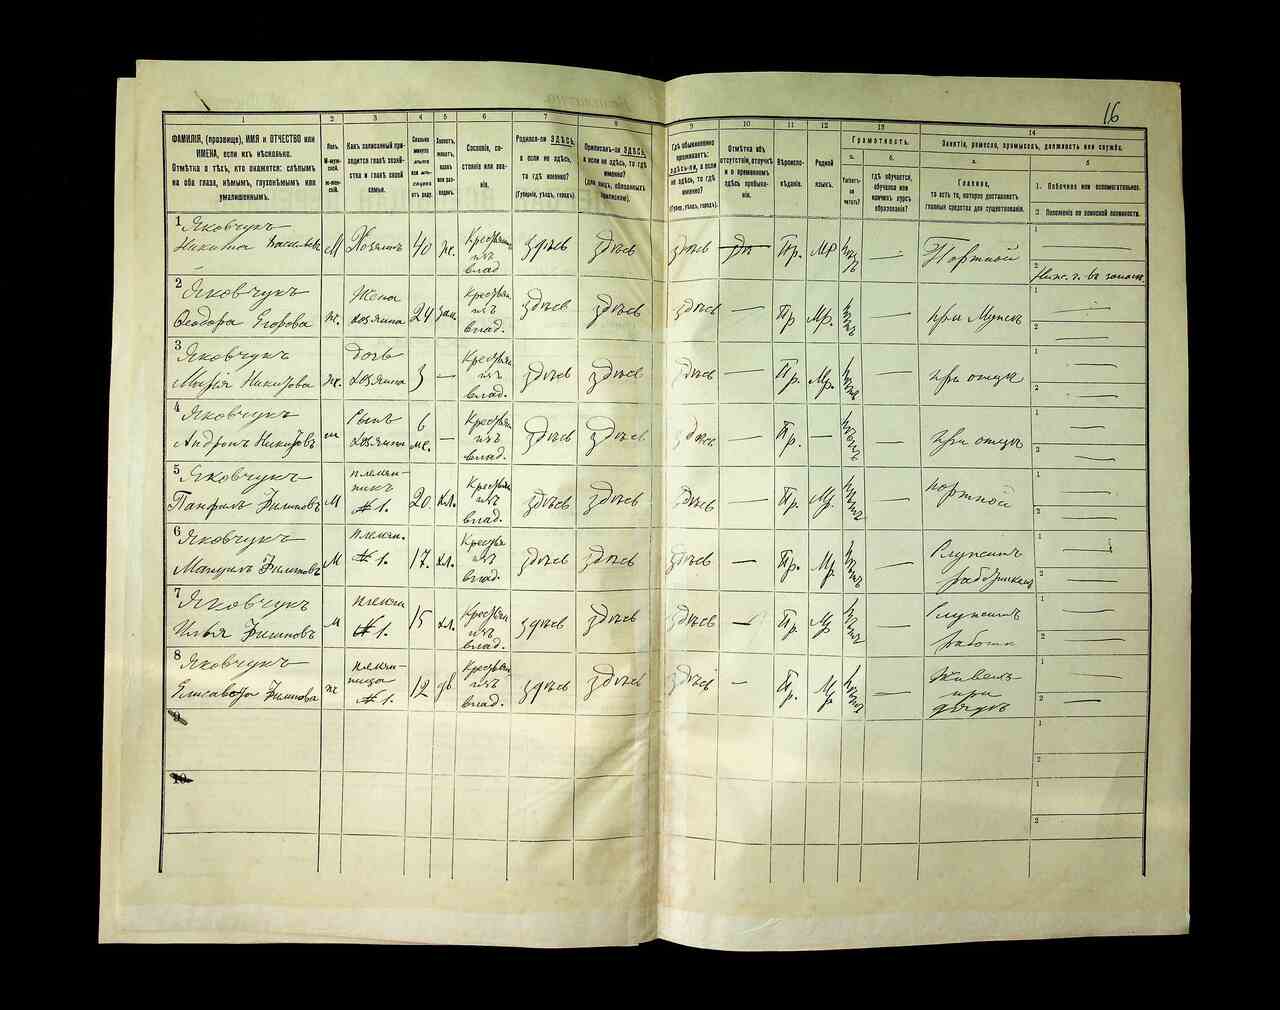 16
1 2 3 4 5 6 7 8 9 10 11 12 13 14
ФАМИЛІЯ, (прозвище), ИМЯ и ОТЧЕСТВО или
ИМЕНА, если ихъ нѣсколько.
Отмѣтка о тѣхъ, кто окажется: слѣпымъ
на оба глаза, нѣмымъ, глухонѣмымъ или
умалишеннымъ.
Полъ.
М-муж-
ской.
Ж-жен-
скій.
Какъ записанный при-
ходится главѣ хозяй-
ства и главѣ своей
семьи.
Сколько
минуло
лѣтъ
или мѣ-
сяцевъ
отъ роду.
Холостъ,
женатъ,
вдовъ
или раз-
веденъ.
Сословіе, со-
стояніе или зва-
ніе.
Родился-ли ЗДѢСЬ,
а если не здѣсь,
то гдѣ именно?
(Губернія, уѣздъ, городъ).
Приписанъ-ли ЗДѢСЬ,
а если не здѣсь, то гдѣ
именно?
(для лицъ, обязанныхъ
припискою).
Гдѣ обыкновенно
проживаетъ:
здѣсь-ли, а если
не здѣсь, то гдѣ
именно?
(Губер., уѣздъ, городъ).
Отмѣтка объ
отсутствіи, отлучкѣ
и о временномъ
здѣсь пребыва-
ніи.
Вѣроиспо-
вѣданіе.
Родной
языкъ.
Грамотность.
а.
Умѣетъ-
ли
читать?
б.
Гдѣ обучается,
обучался или
кончилъ курсъ
образованія?
Занятіе, ремесло, промыселъ, должность или служба.
а.
Главное,
то есть то, которое доставляетъ
главныя средства для существованія.
б.
1. Побочное или вспомогательное.
2. Положеніе по воинской повинности.
1 Яковчукъ
Никита М Хозяинъ 40 же. Крестьян. изъ влад. здѣсь здѣсь здѣсь — Пр. Мр — Портной
2 Яковчукъ
Ѳеодора Егорова ж. Жена хозяина 24 зам. Крестьян. изъ влад. здѣсь здѣсь здѣсь — Пр Мр. — при Мужѣ
3 Яковчукъ
Марія Никитова ж. дочь хозяина 3 — Крестьян. изъ влад. здѣсь здѣсь здѣсь — Пр. Мр. — при отцѣ
4 Яковчукъ
Андронъ Никитовъ м Сынъ хозяина 6 ме. — Крестьян. изъ влад. здѣсь здѣсь здѣсь — Пр. — — при отцѣ
5 Яковчукъ
Панфилъ Филиповъ М племян-никъ №1. 20 хл. Крестьян. изъ влад. здѣсь здѣсь здѣсь — Пр Мр. — портной
6 Яковчукъ
Мануилъ Филиповъ М племян. №1. 17. хл. Крестьян. изъ влад. здѣсь здѣсь здѣсь — Пр. Мр — Служитъ
7 Яковчукъ
Илья Филиповъ М племян №1. 15 хл. Крестьян изъ влад. здѣсь здѣсь здѣсь — Пр. Мр — Служитъ
8 Яковчукъ
Елисавета Филипова ж племян-ница №1. 12 дѣ Крестьян. изъ влад. здѣсь здѣсь здѣсь — Пр. Мр — Живетъ при
9
10